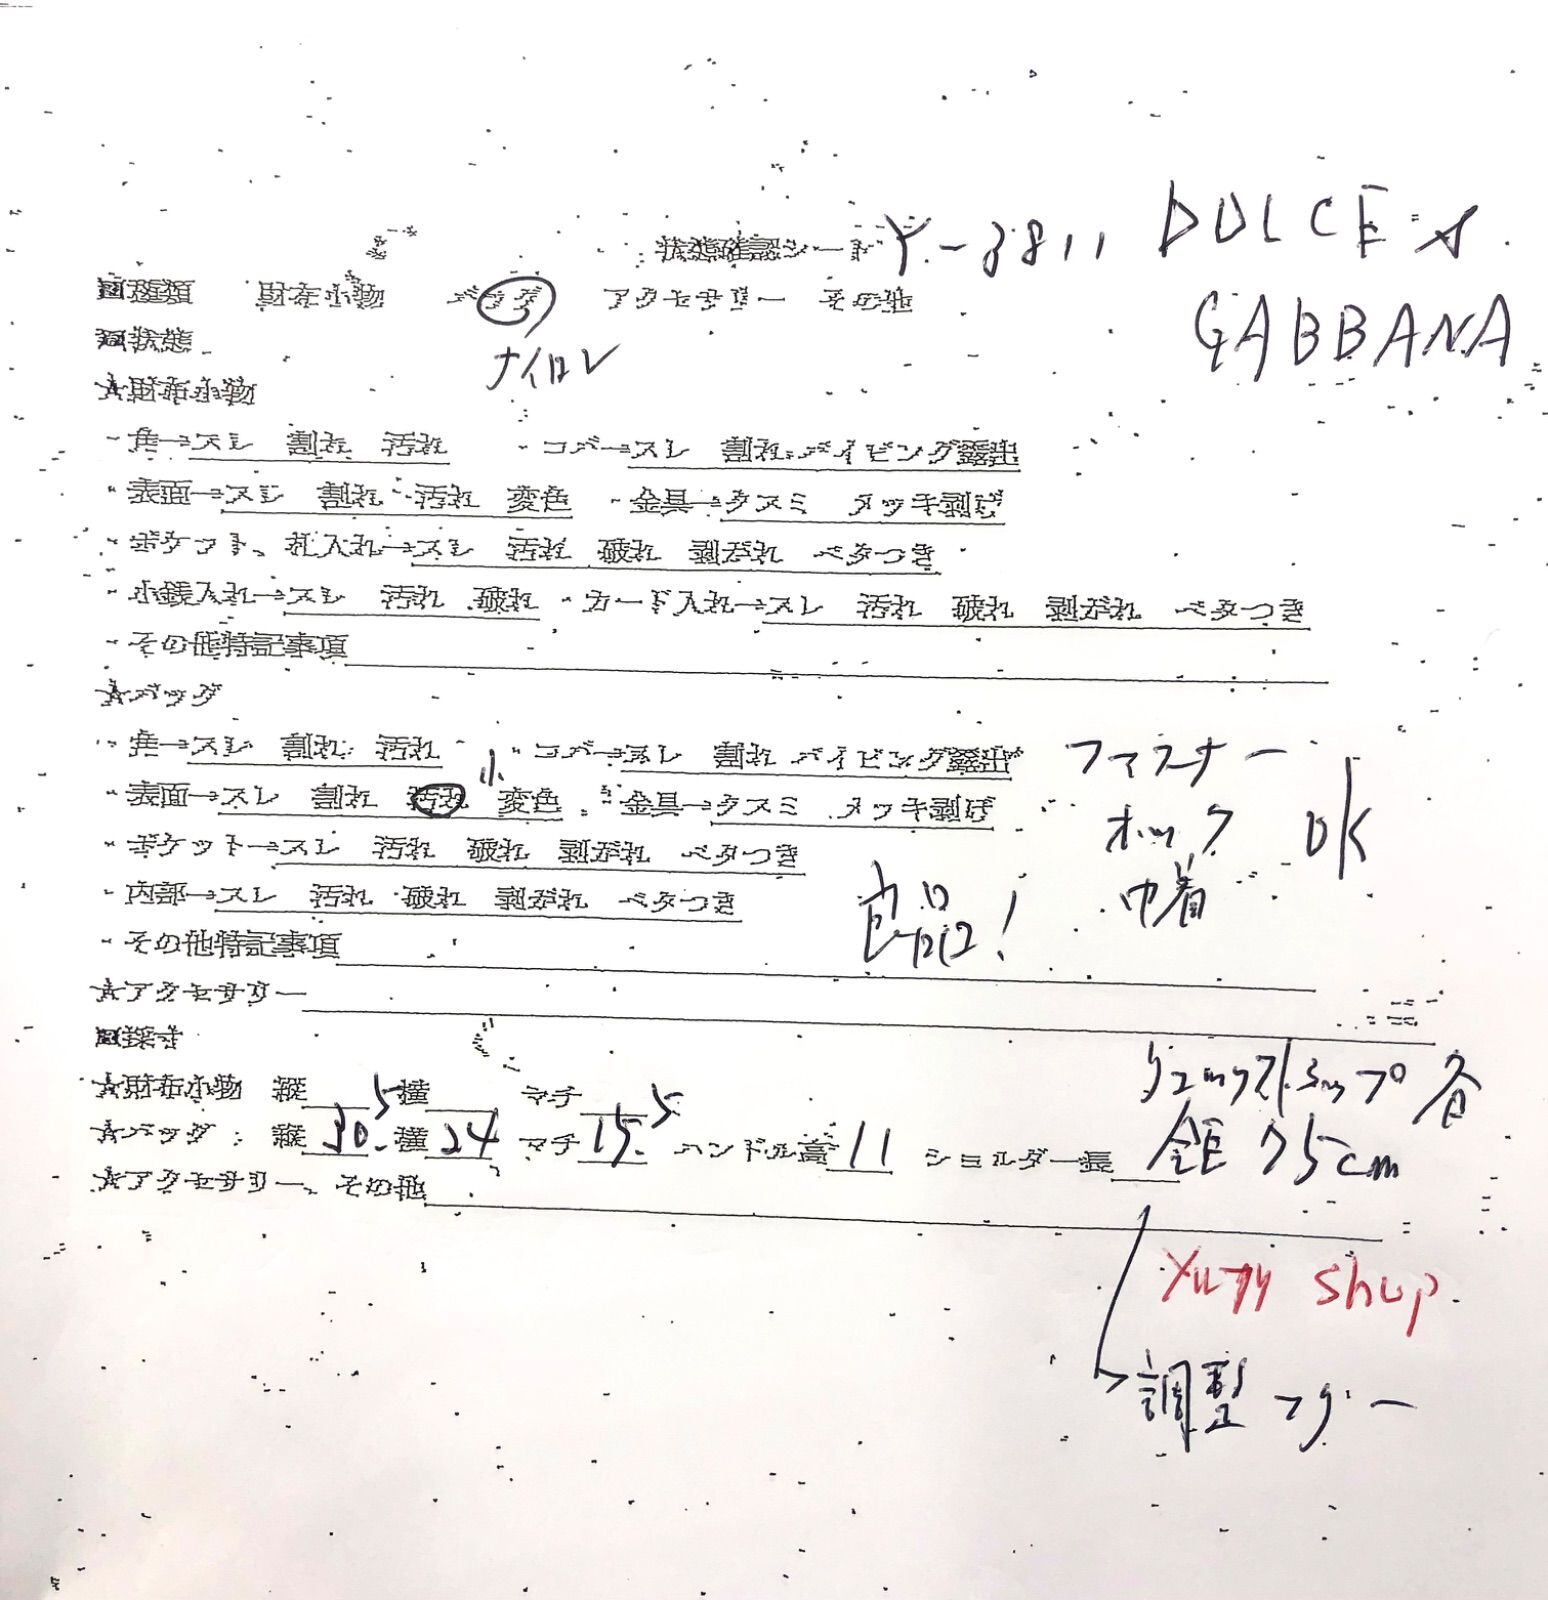 状態確認シート Y-3811 DOLCE &
GABBANA
種類 財布小物 バッグ アクセサリー その他
ナイロン
状態
★財布小物
・角→スレ 割れ 汚れ ・コバ→スレ 割れ パイピング露出
・表面→スレ 割れ 汚れ 変色 ・金具→クスミ メッキ剥げ
・ポケット、札入れ→スレ 汚れ 破れ 剥がれ ベタつき
・小銭入れ→スレ 汚れ 破れ ・カード入れ→スレ 汚れ 破れ 剥がれ ベタつき
・その他特記事項
★バッグ
・角→スレ 割れ 汚れ ・コバ→スレ 割れ パイピング露出 ファスナー
小
・表面→スレ 割れ 汚れ 変色 ・金具→クスミ メッキ剥げ ホック OK
・ポケット→スレ 汚れ 破れ 剥がれ ベタつき
・内部→スレ 汚れ 破れ 剥がれ ベタつき 良品! 巾着
・その他特記事項
★アクセサリー
採寸
リュックストラップ
★財布小物 縦 横 マチ
★バッグ 縦30.5 横24 マチ15.5 ハンドル高11 ショルダー長 全長75cm
★アクセサリー、その他
shop
調整